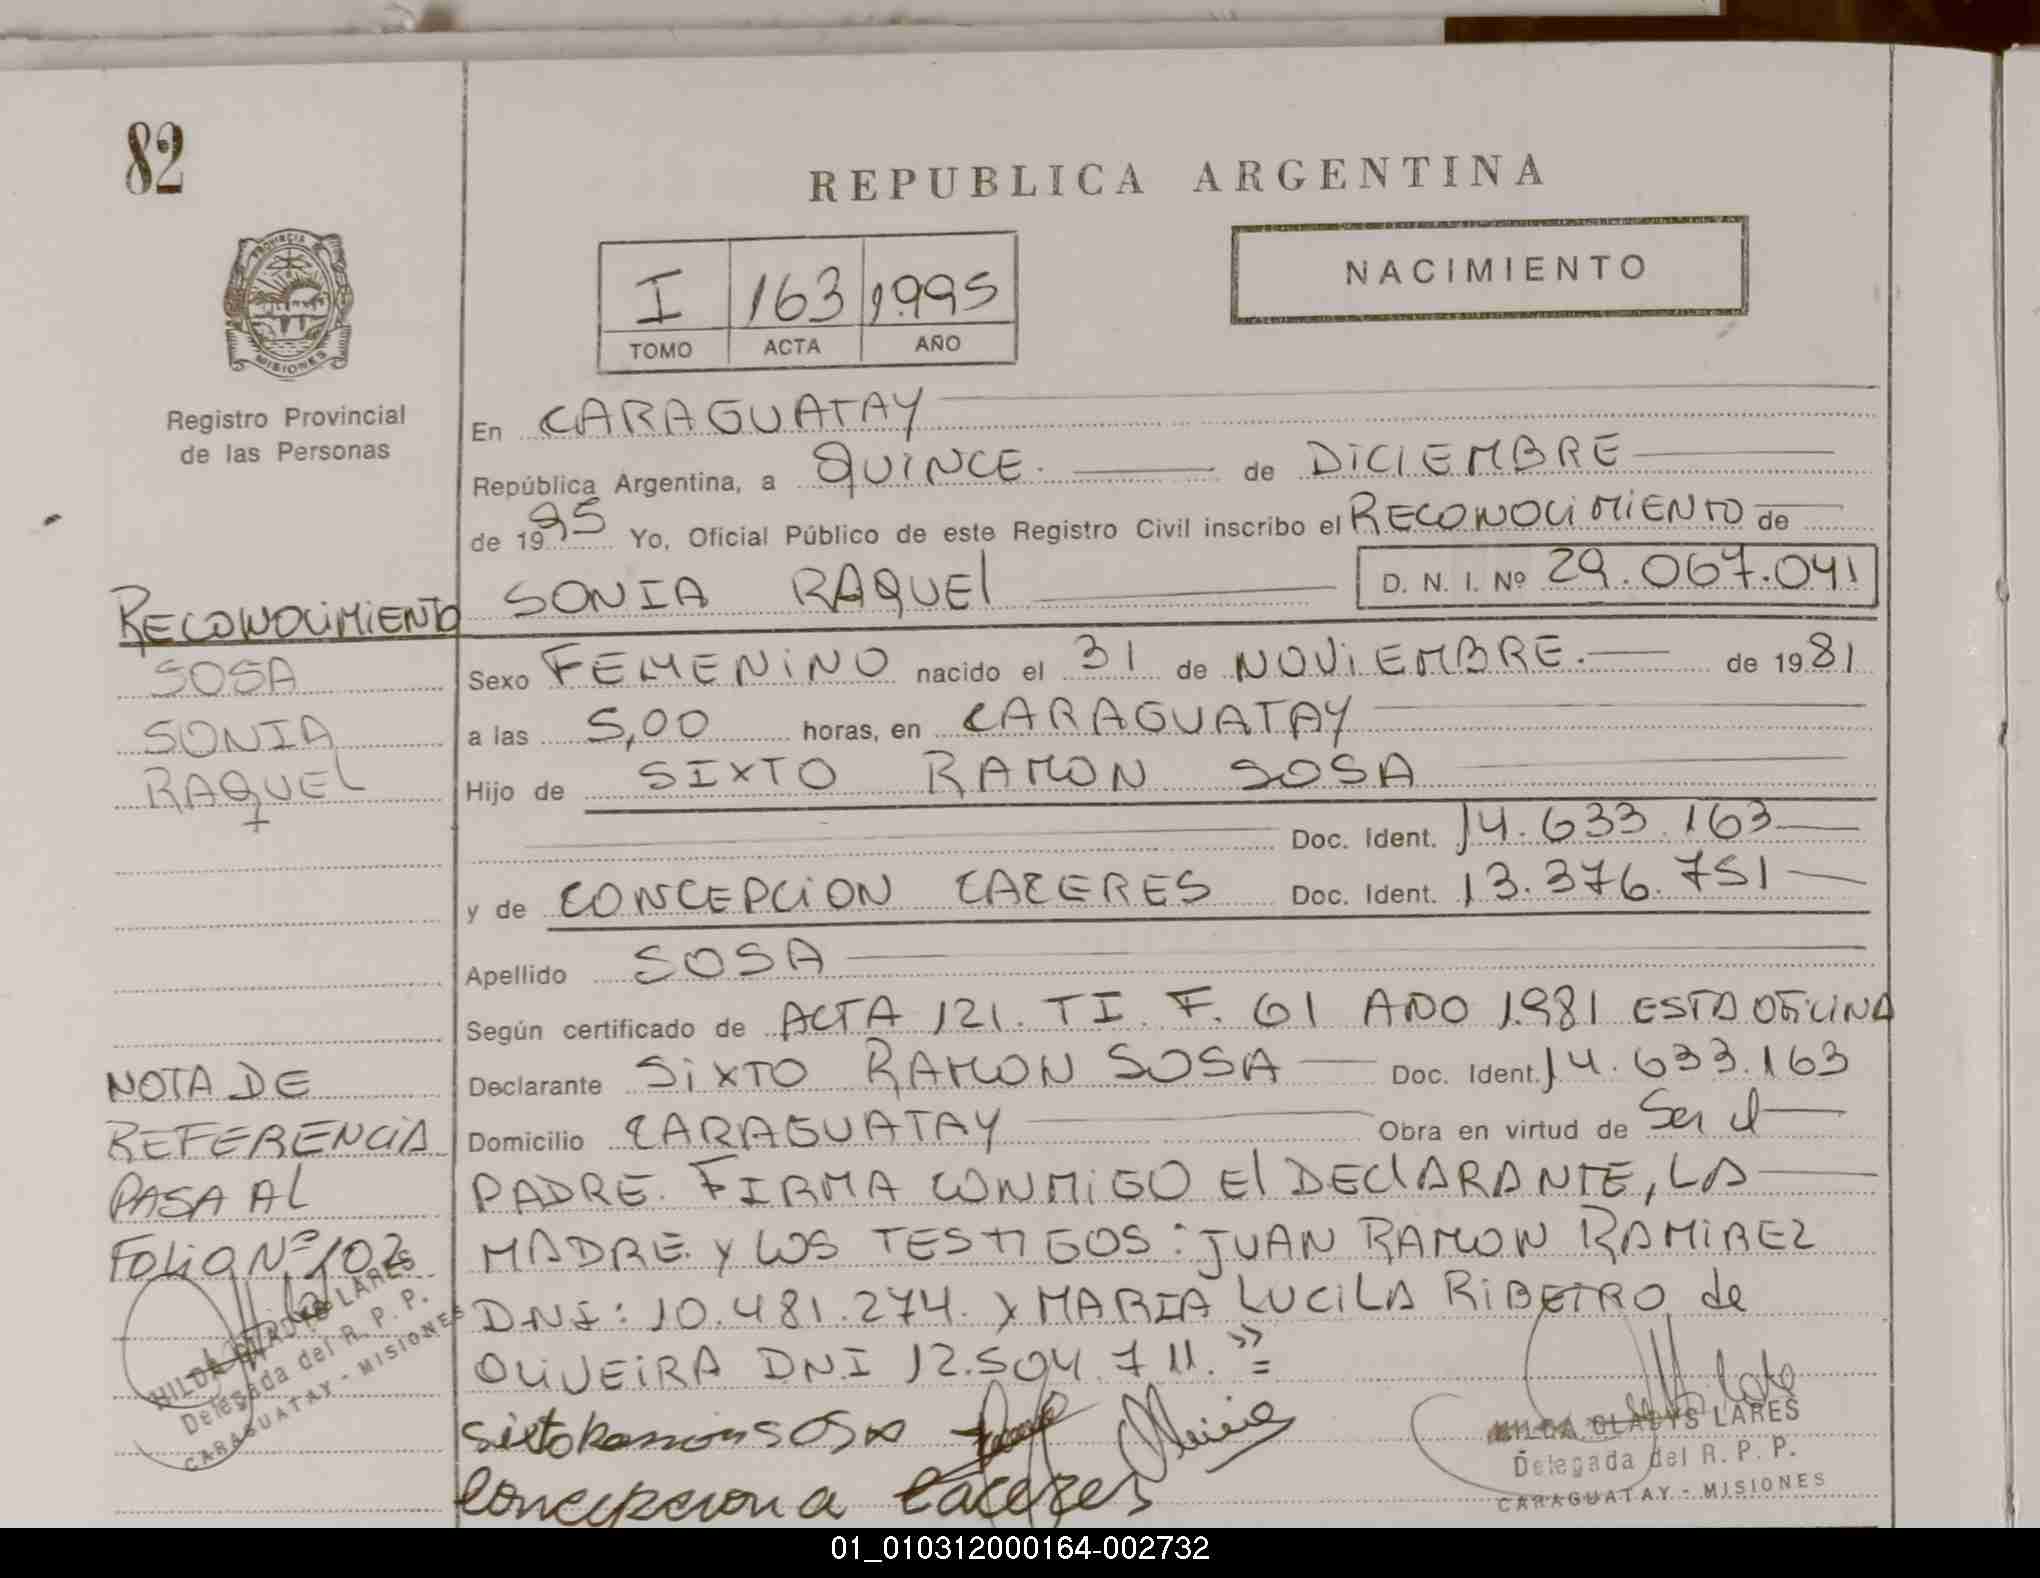 82
REPUBLICA ARGENTINA
NACIMIENTO
I 163 1.995
TOMO ACTA AÑO
PROVINCIA
MISIONES
Registro Provincial
de las Personas
En CARAGUATAY
República Argentina, a QUINCE. de DICIEMBRE
de 1995 Yo, Oficial Público de este Registro Civil inscribo el RECONOCIMIENTO de
SONIA RAQUEL D. N. I. Nº 29.067.041
RECONOCIMIENTO
SOSA
SONIA
RAQUEL
Sexo FEMENINO nacido el 31 de NOVIEMBRE. de 1981
a las 5,00 horas, en CARAGUATAY
Hijo de SIXTO RAMON SOSA
Doc. Ident. 14.633.163
y de CONCEPCION CACERES Doc. Ident. 13.376.751
Apellido SOSA
Según certificado de ACTA 121. TI. F. 61 AÑO 1.981 ESTA OFICINA
Declarante SIXTO RAMON SOSA Doc. Ident. 14.633.163
Domicilio CARAGUATAY Obra en virtud de Ser el
PADRE. FIRMA CONMIGO El DEClARANTE, LA
MADRE. y LOS TESTIGOS: JUAN RAMON RAMIREZ
DNI: 10.481.274. y MARIA LUCILA RIBEIRO de
OLIVEIRA DNI 12.504.711."=
NOTA DE
REFERENCIA
PASA AL
FOLIO Nº 102
HILDA GLADYS LARES
Delegada del R. P. P.
CARAGUATAY - MISIONES
sixto Ramon SOSA
Concepciona Caceres
HILDA GLADYS LARES
Delegada del R. P. P.
CARAGUATAY - MISIONES
01_010312000164-002732